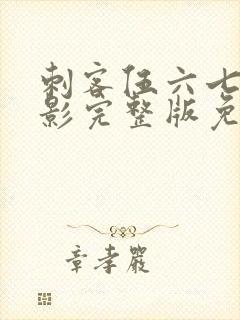 刺客伍六七
影完整版免
章孝严